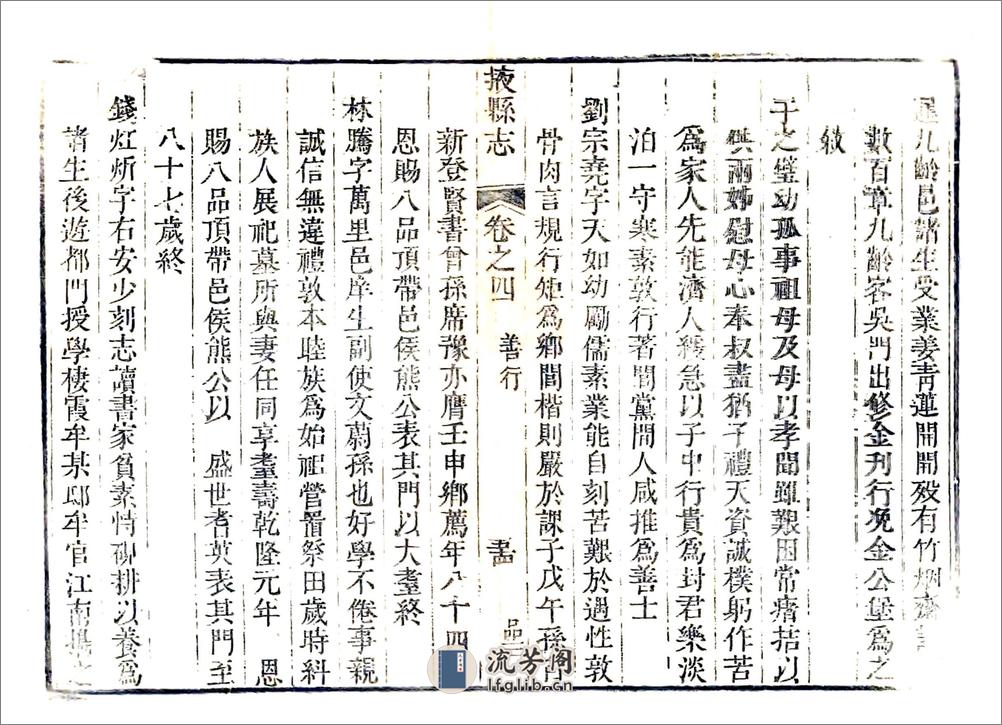 九齡邑諸生受業姜青蓮開開歿有竹烟齋
數百章九齡客吳門出修金刊行浼金公堡爲之
敘
于之璧幼孤事祖母及母以孝聞雖艱困常瘏拮以
供兩姊慰母心奉叔盡猶子禮天資誠樸躬作苦
爲家人先能濟人緩急以子中行貴爲封君樂淡
泊一守寒素敦行著聞黨閭人咸推爲善士
劉宗堯字天如幼勵儒素業能自刻苦艱於遇性敦
骨肉言規行矩爲鄉閭楷則嚴於課子戊午孫
掖縣志
卷之四
善行
新登賢書曾孫席豫亦膺壬申鄉薦年八十四
恩賜八品頂帶邑侯熊公表其門以大耋終
林騰字萬里邑庠生副使文蔚孫也好學不倦事親
誠信無違禮敦本睦族爲始祖營置祭田歲時糾
族人展祀墓所與妻任同享耋壽乾隆元年 恩
賜八品頂帶邑侯熊公以 盛世耆英表其門至
八十七歲終
錢灴炘字右安少刻志讀書家貧素恃硯耕以養爲
諸生後遊都門授學棲霞牟某邸牟官江南
流芳阁
lfglib.cn